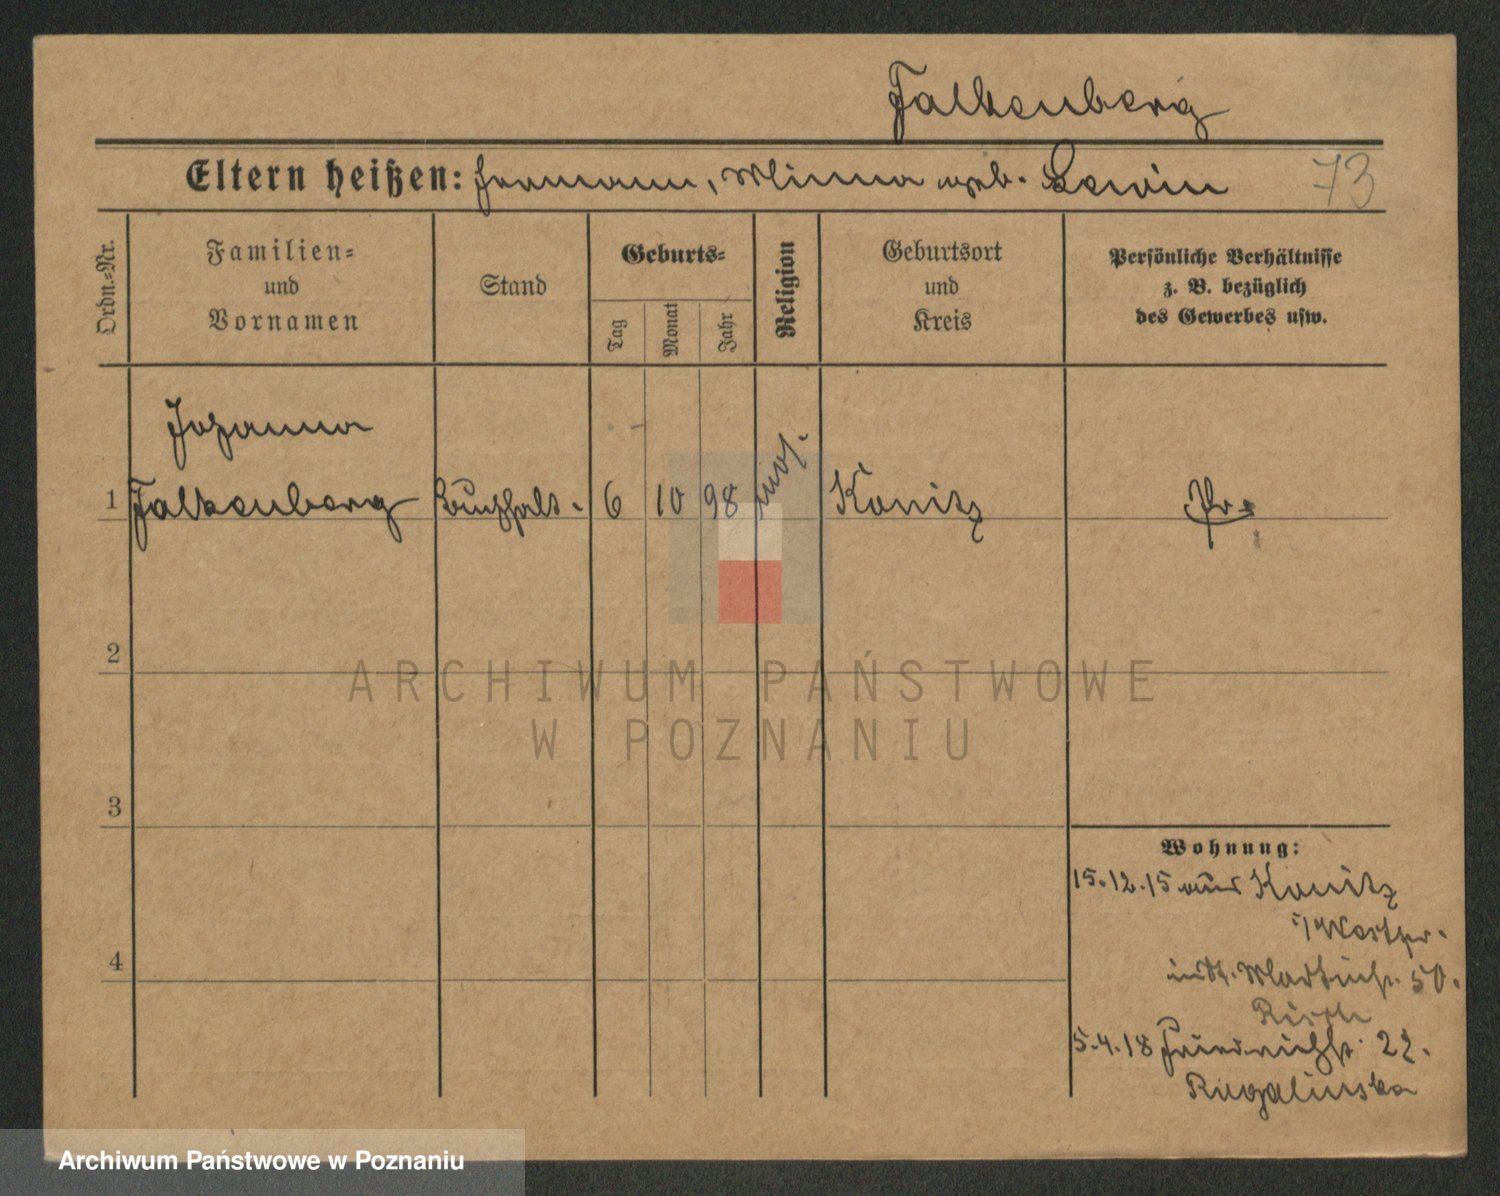 Falkenberg
Eltern heißen: Hermann, Minna geb. Lewin 73
Ordn.-Nr.
Familien-
und
Vornamen
Stand
Geburts-
Tag
Monat
Jahr
Religion
Geburtsort
und
Kreis
Persönliche Verhältnisse
z. B. bezüglich
des Gewerbes usw.
Johanna
1 Falkenberg Buchhalt. 6 10 98 mos. Konitz Pr.
2
ARCHIWUM PAŃSTWOWE
W POZNANIU
3
Wohnung:
15.12.15 aus Konitz
i/Westpr.
4
Martinst. 50.
5.4.18 Friedrichst. 22.
Rogalinska
Archiwum Państwowe w Poznaniu